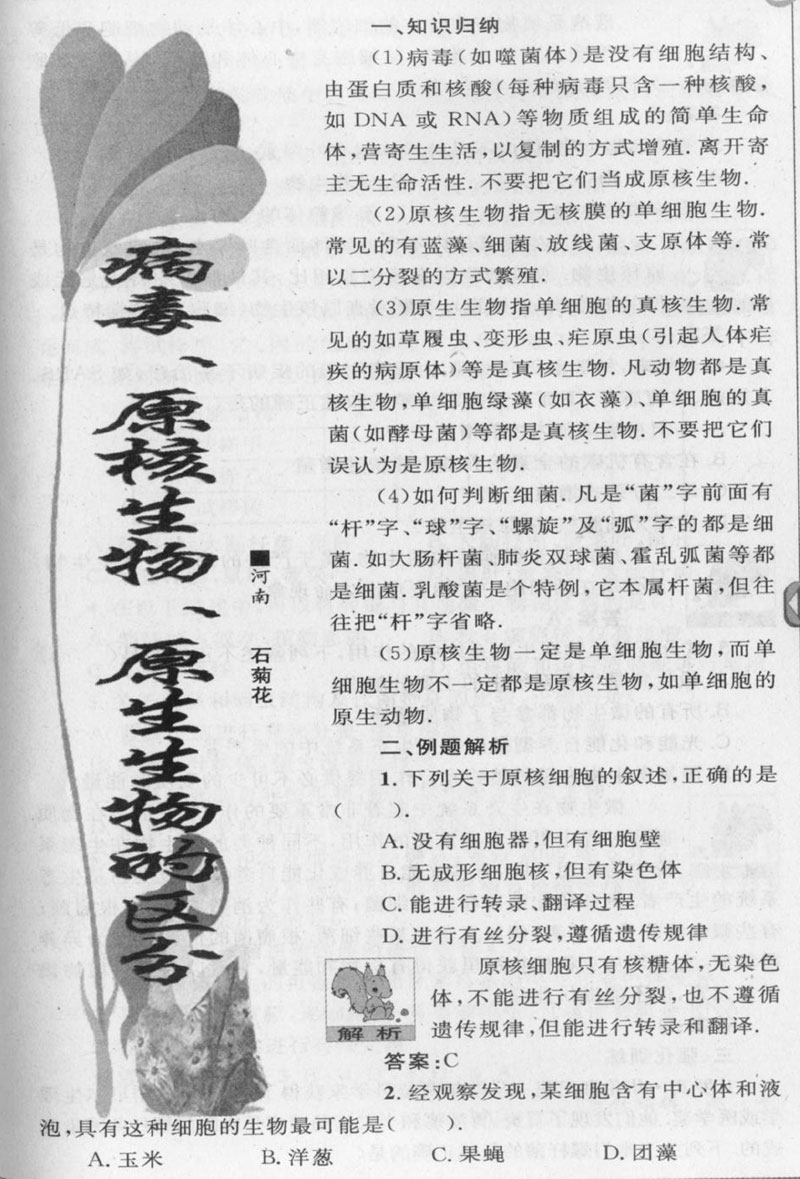 病毒、原核生物、原生生物的区分
■河南 石菊花
一、知识归纳
(1)病毒(如噬菌体)是没有细胞结构、
由蛋白质和核酸(每种病毒只含一种核酸,
如 DNA 或 RNA)等物质组成的简单生命
体,营寄生生活,以复制的方式增殖.离开寄
主无生命活性.不要把它们当成原核生物.
(2)原核生物指无核膜的单细胞生物.
常见的有蓝藻、细菌、放线菌、支原体等.常
以二分裂的方式繁殖.
(3)原生生物指单细胞的真核生物.常
见的如草履虫、变形虫、疟原虫(引起人体疟
疾的病原体)等是真核生物.凡动物都是真
核生物,单细胞绿藻(如衣藻)、单细胞的真
菌(如酵母菌)等都是真核生物.不要把它们
误认为是原核生物.
(4)如何判断细菌.凡是“菌”字前面有
“杆”字、“球”字、“螺旋”及“弧”字的都是细
菌.如大肠杆菌、肺炎双球菌、霍乱弧菌等都
是细菌.乳酸菌是个特例,它本属杆菌,但往
往把“杆”字省略.
(5)原核生物一定是单细胞生物,而单
细胞生物不一定都是原核生物,如单细胞的
原生动物.
二、例题解析
1. 下列关于原核细胞的叙述,正确的是
( ).
A. 没有细胞器,但有细胞壁
B. 无成形细胞核,但有染色体
C. 能进行转录、翻译过程
D. 进行有丝分裂,遵循遗传规律
解析
原核细胞只有核糖体,无染色
体,不能进行有丝分裂,也不遵循
遗传规律,但能进行转录和翻译.
答案:C
2. 经观察发现,某细胞含有中心体和液
泡,具有这种细胞的生物最可能是( ).
A. 玉米 B. 洋葱 C. 果蝇 D. 团藻